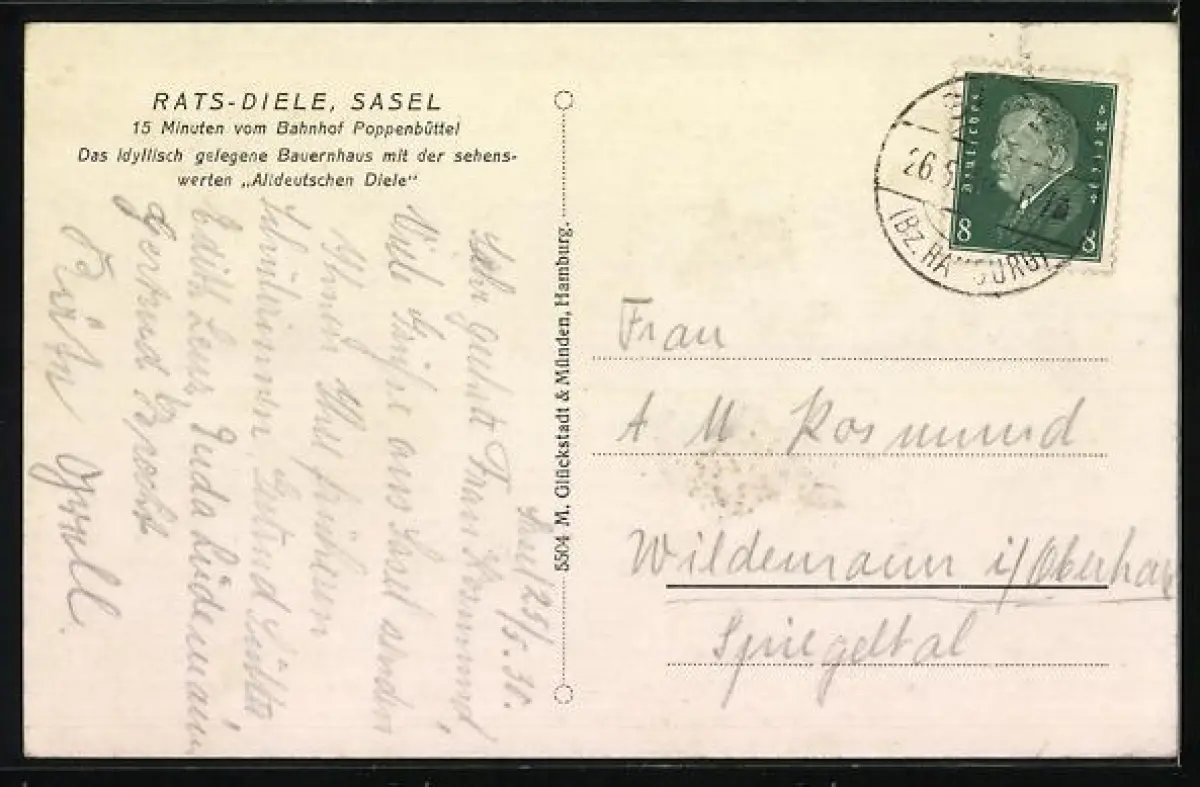 RATS-DIELE, SASEL
15 Minuten vom Bahnhof Poppenbüttel
Das idyllisch gelegene Bauernhaus mit der sehens-
werten „Altdeutschen Diele“
Sasel 25/5. 30.
Sehr geehrte Frau Rosmund,
Viele Grüße aus Sasel senden
Ihnen Ihre früheren
Schülerinnen, Gertrud
Edith Lenz, Lüdemann,
Gertrud Brockt
5504 M. Glückstadt & Münden, Hamburg.
Deutsches Reich
8 8
26.5
(BZ. HAMBURG)
Frau
A. M. Rosmund
Wildemann i/Oberharz
Spiegeltal